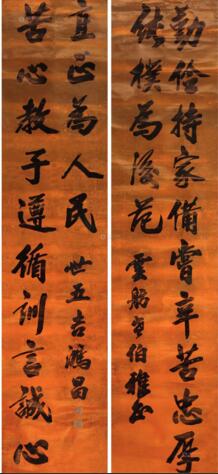 勤儉持家備嘗辛苦忠厚
傳樸為後范
雲船 伯雅
苦心教子遵循訓言誠心
直正為人民
世五吉鵬昌